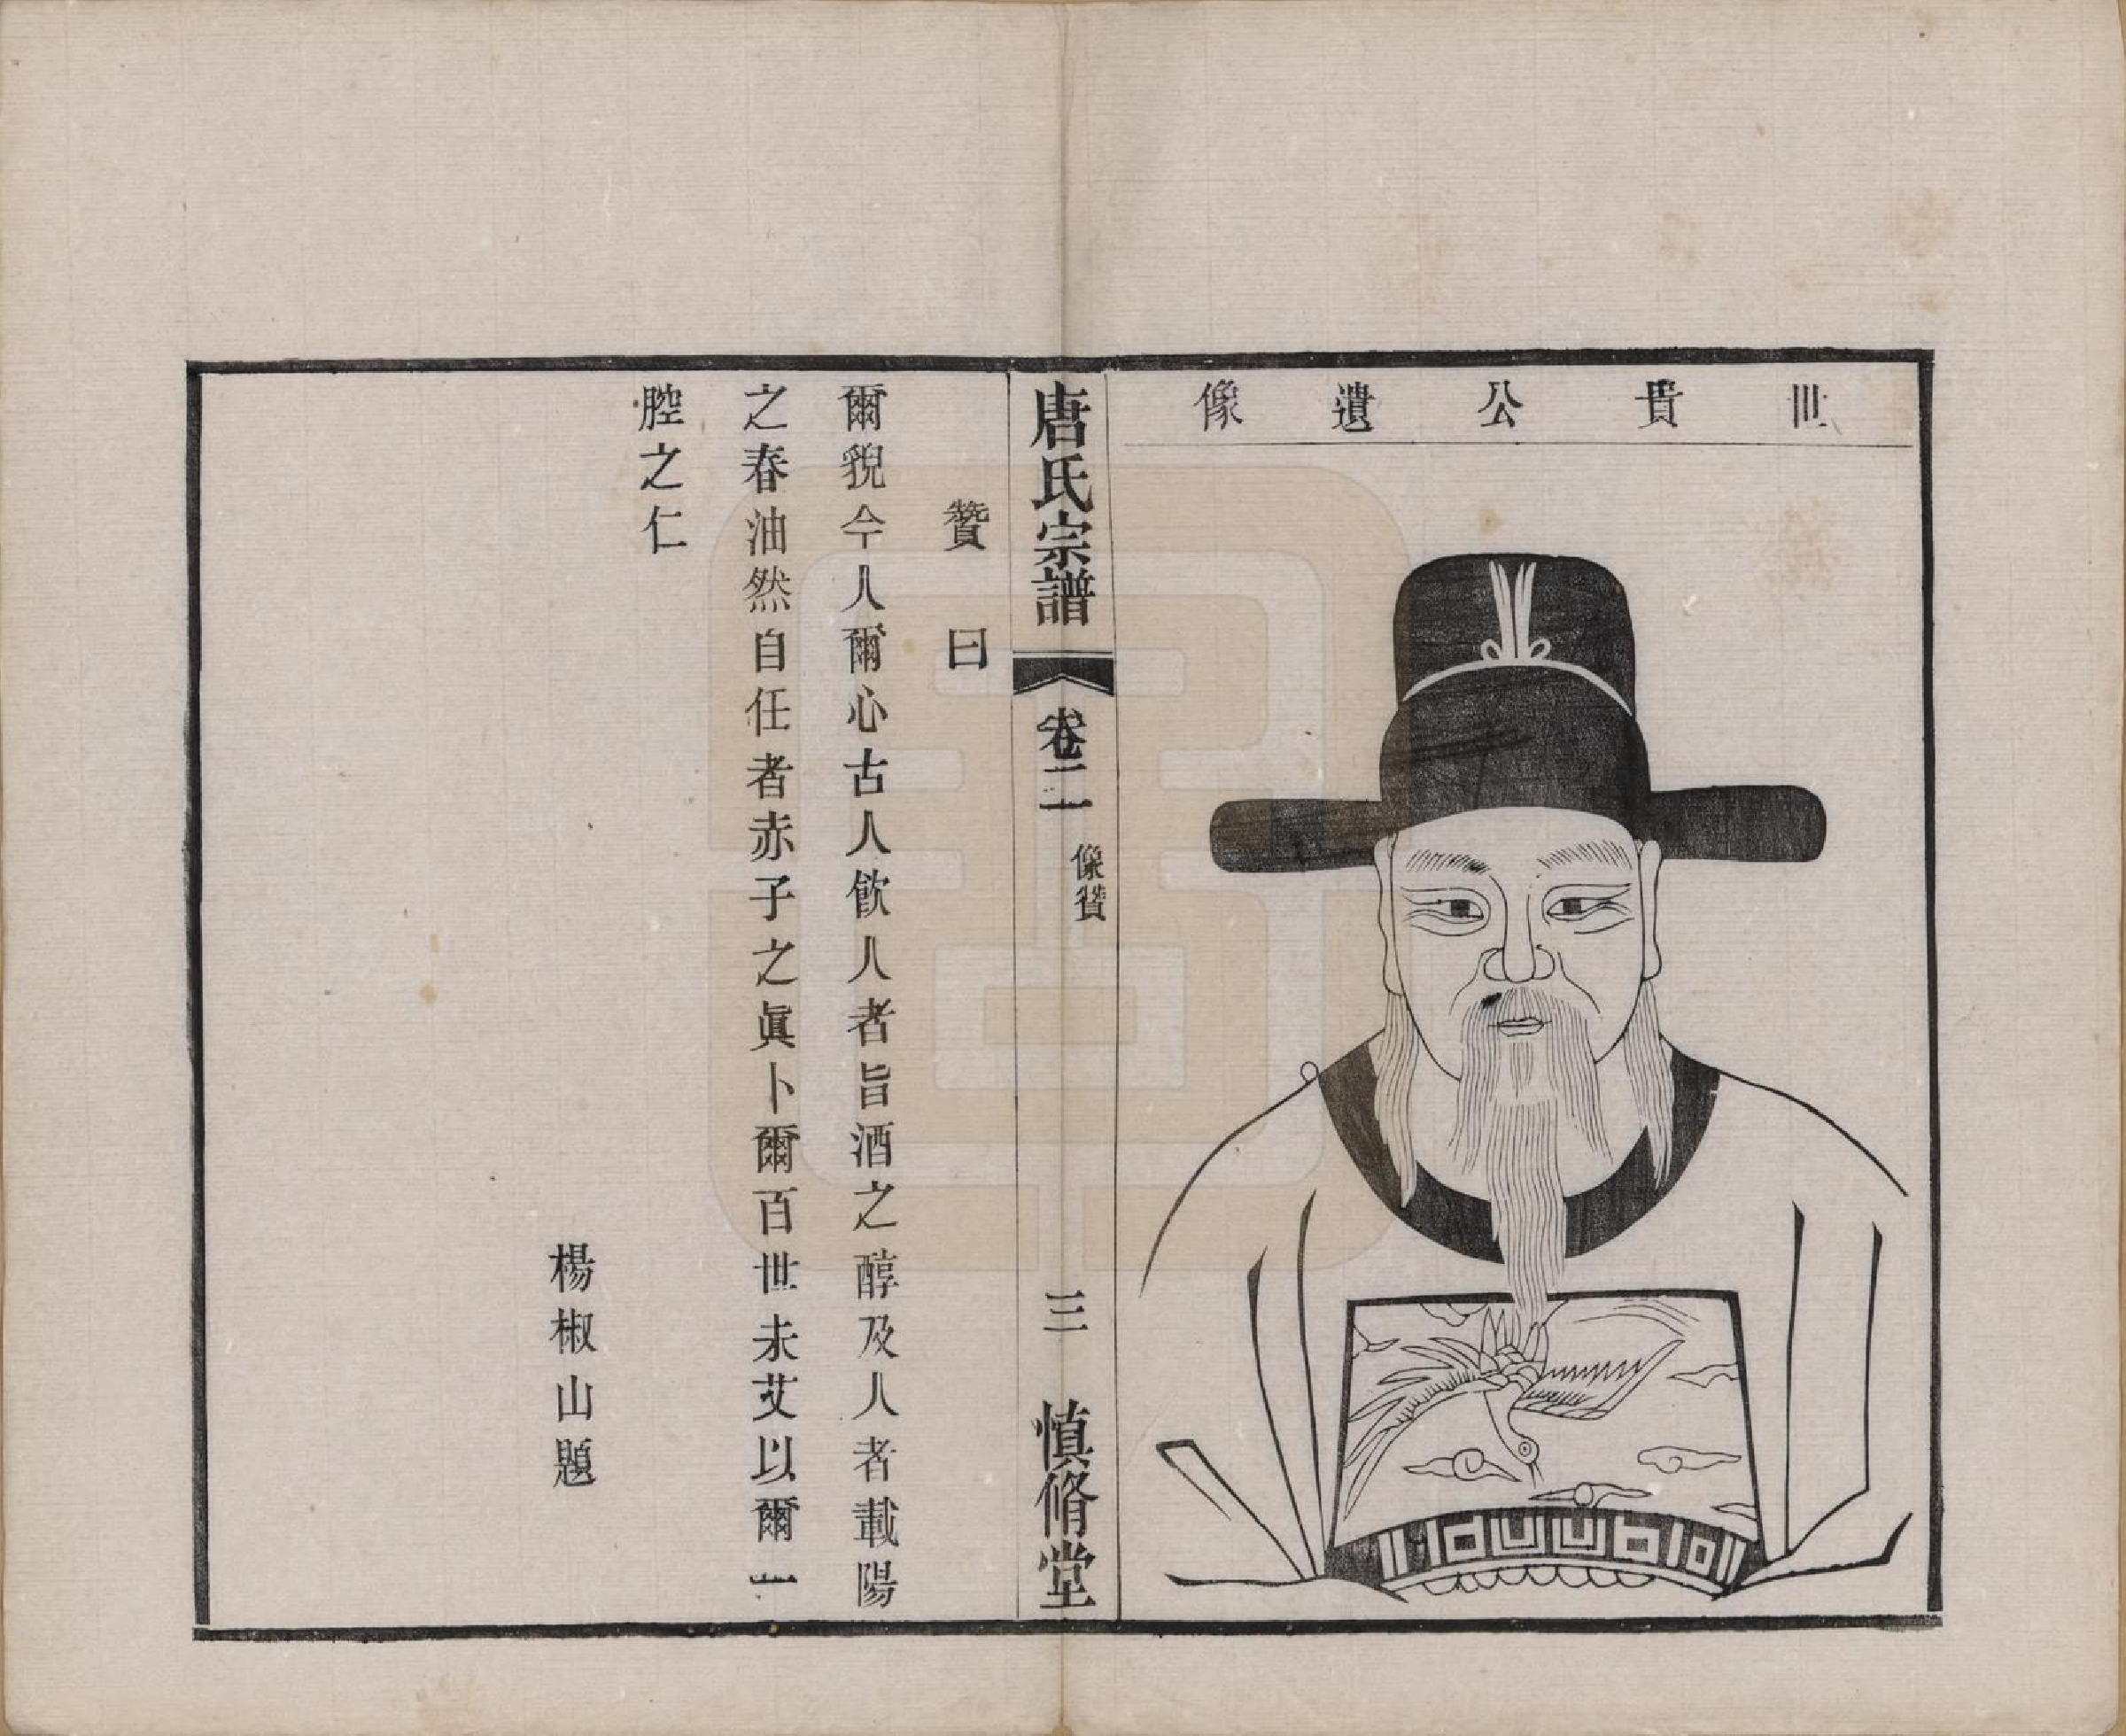 世貴公遺像
唐氏宗譜
卷二
像贊
三
慎脩堂
贊曰
爾貌今人爾心古人飲人者旨酒之醇及人者載陽
之春油然自任者赤子之眞卜爾百世未艾以爾一
腔之仁
楊椒山題